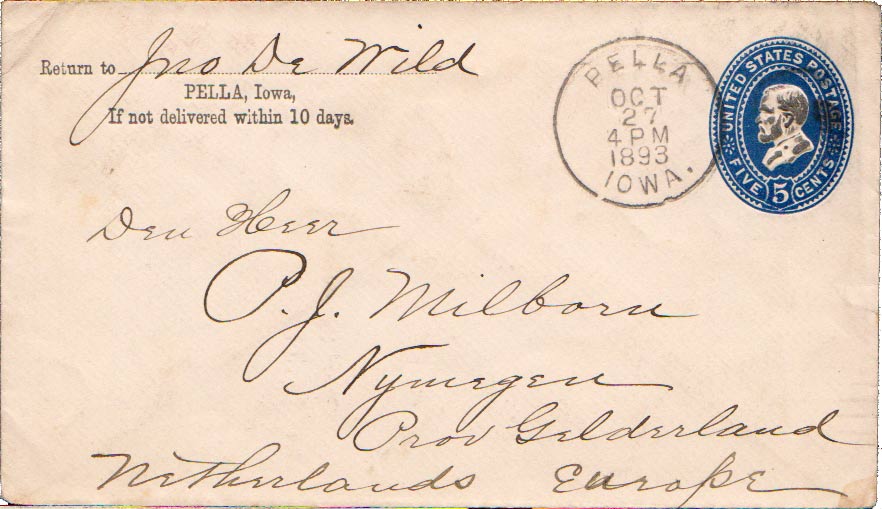 Return to Jno De Wild
PELLA, Iowa,
If not delivered within 10 days.
PELLA
OCT
27
4 PM
1893
IOWA.
UNITED STATES POSTAGE
FIVE 5 CENTS
Den Heer
P. J. Milborn
Nymegen
Prov Gelderland
Netherlands Europe